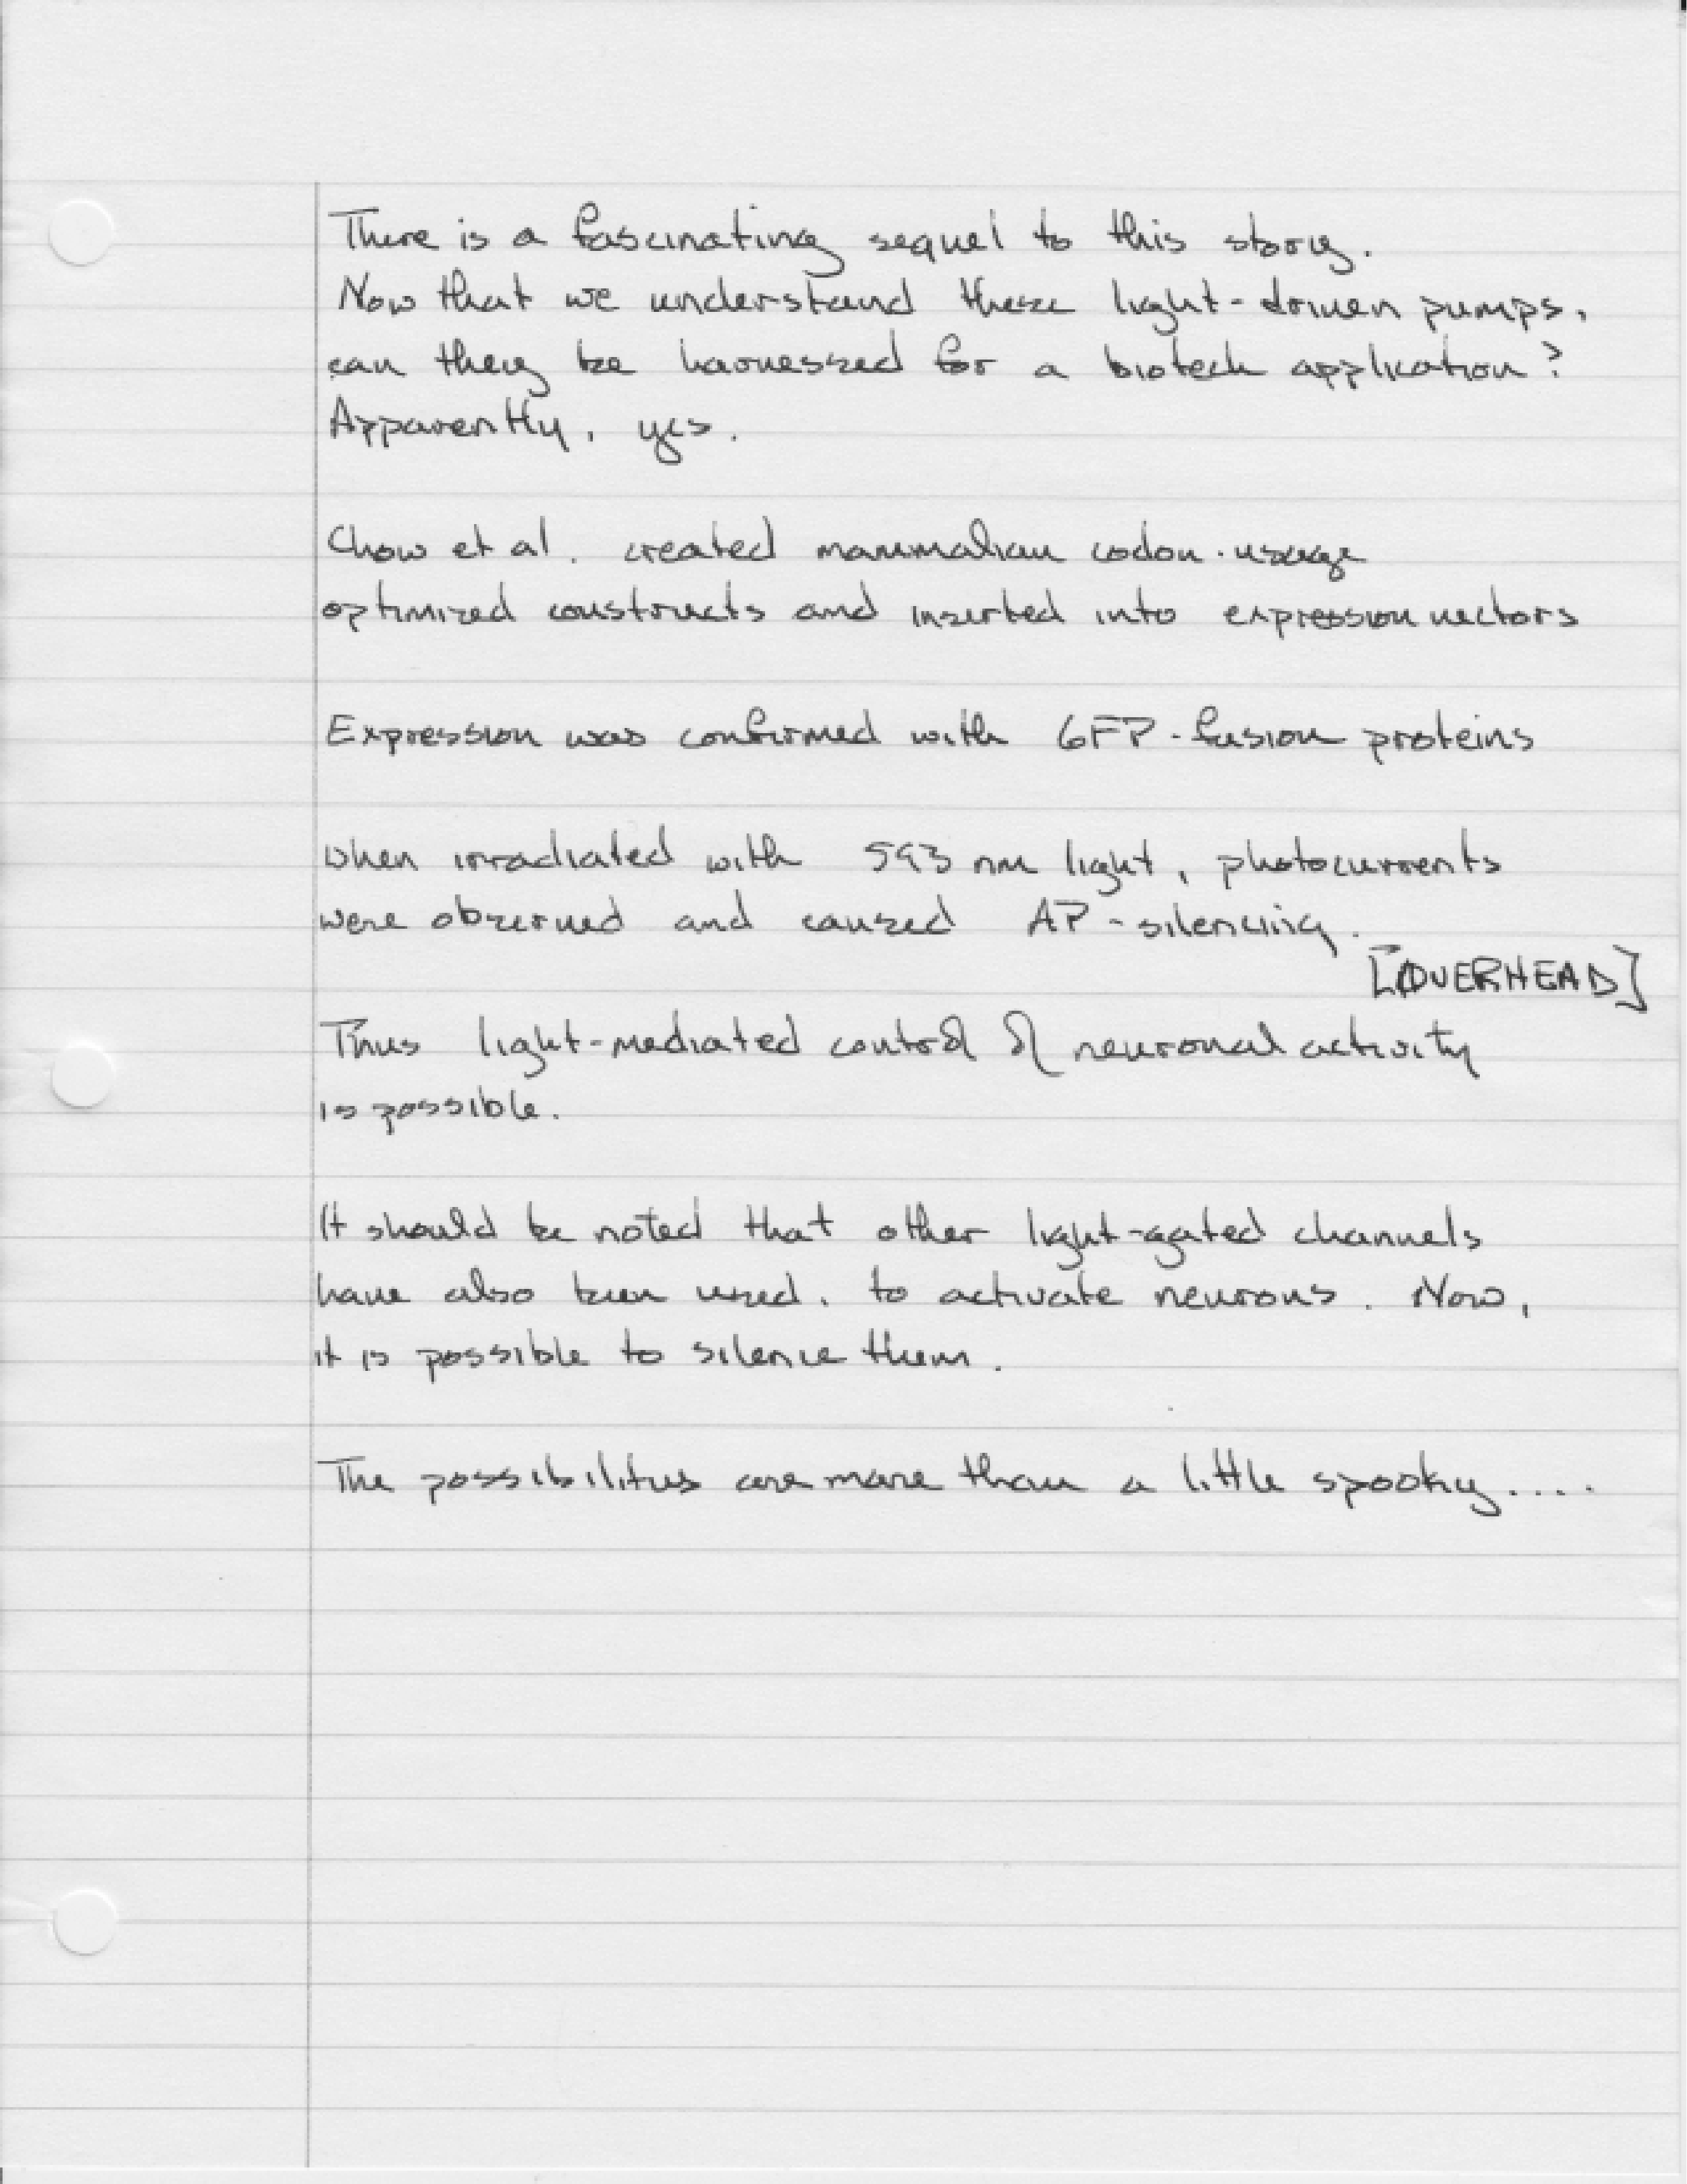 There is a fascinating sequel to this story.
Now that we understand these light-driven pumps,
can they be harnessed for a biotech application?
Apparently, yes.
Chow et al. created mammalian codon-usage
optimized constructs and inserted into expression vectors
Expression was confirmed with GFP-fusion proteins
When irradiated with 593 nm light, photocurrents
were observed and caused AP-silencing.
[OVERHEAD]
Thus light-mediated control of neuronal activity
is possible.
It should be noted that other light-gated channels
have also been used, to activate neurons. Now,
it is possible to silence them.
The possibilities are more than a little spooky....